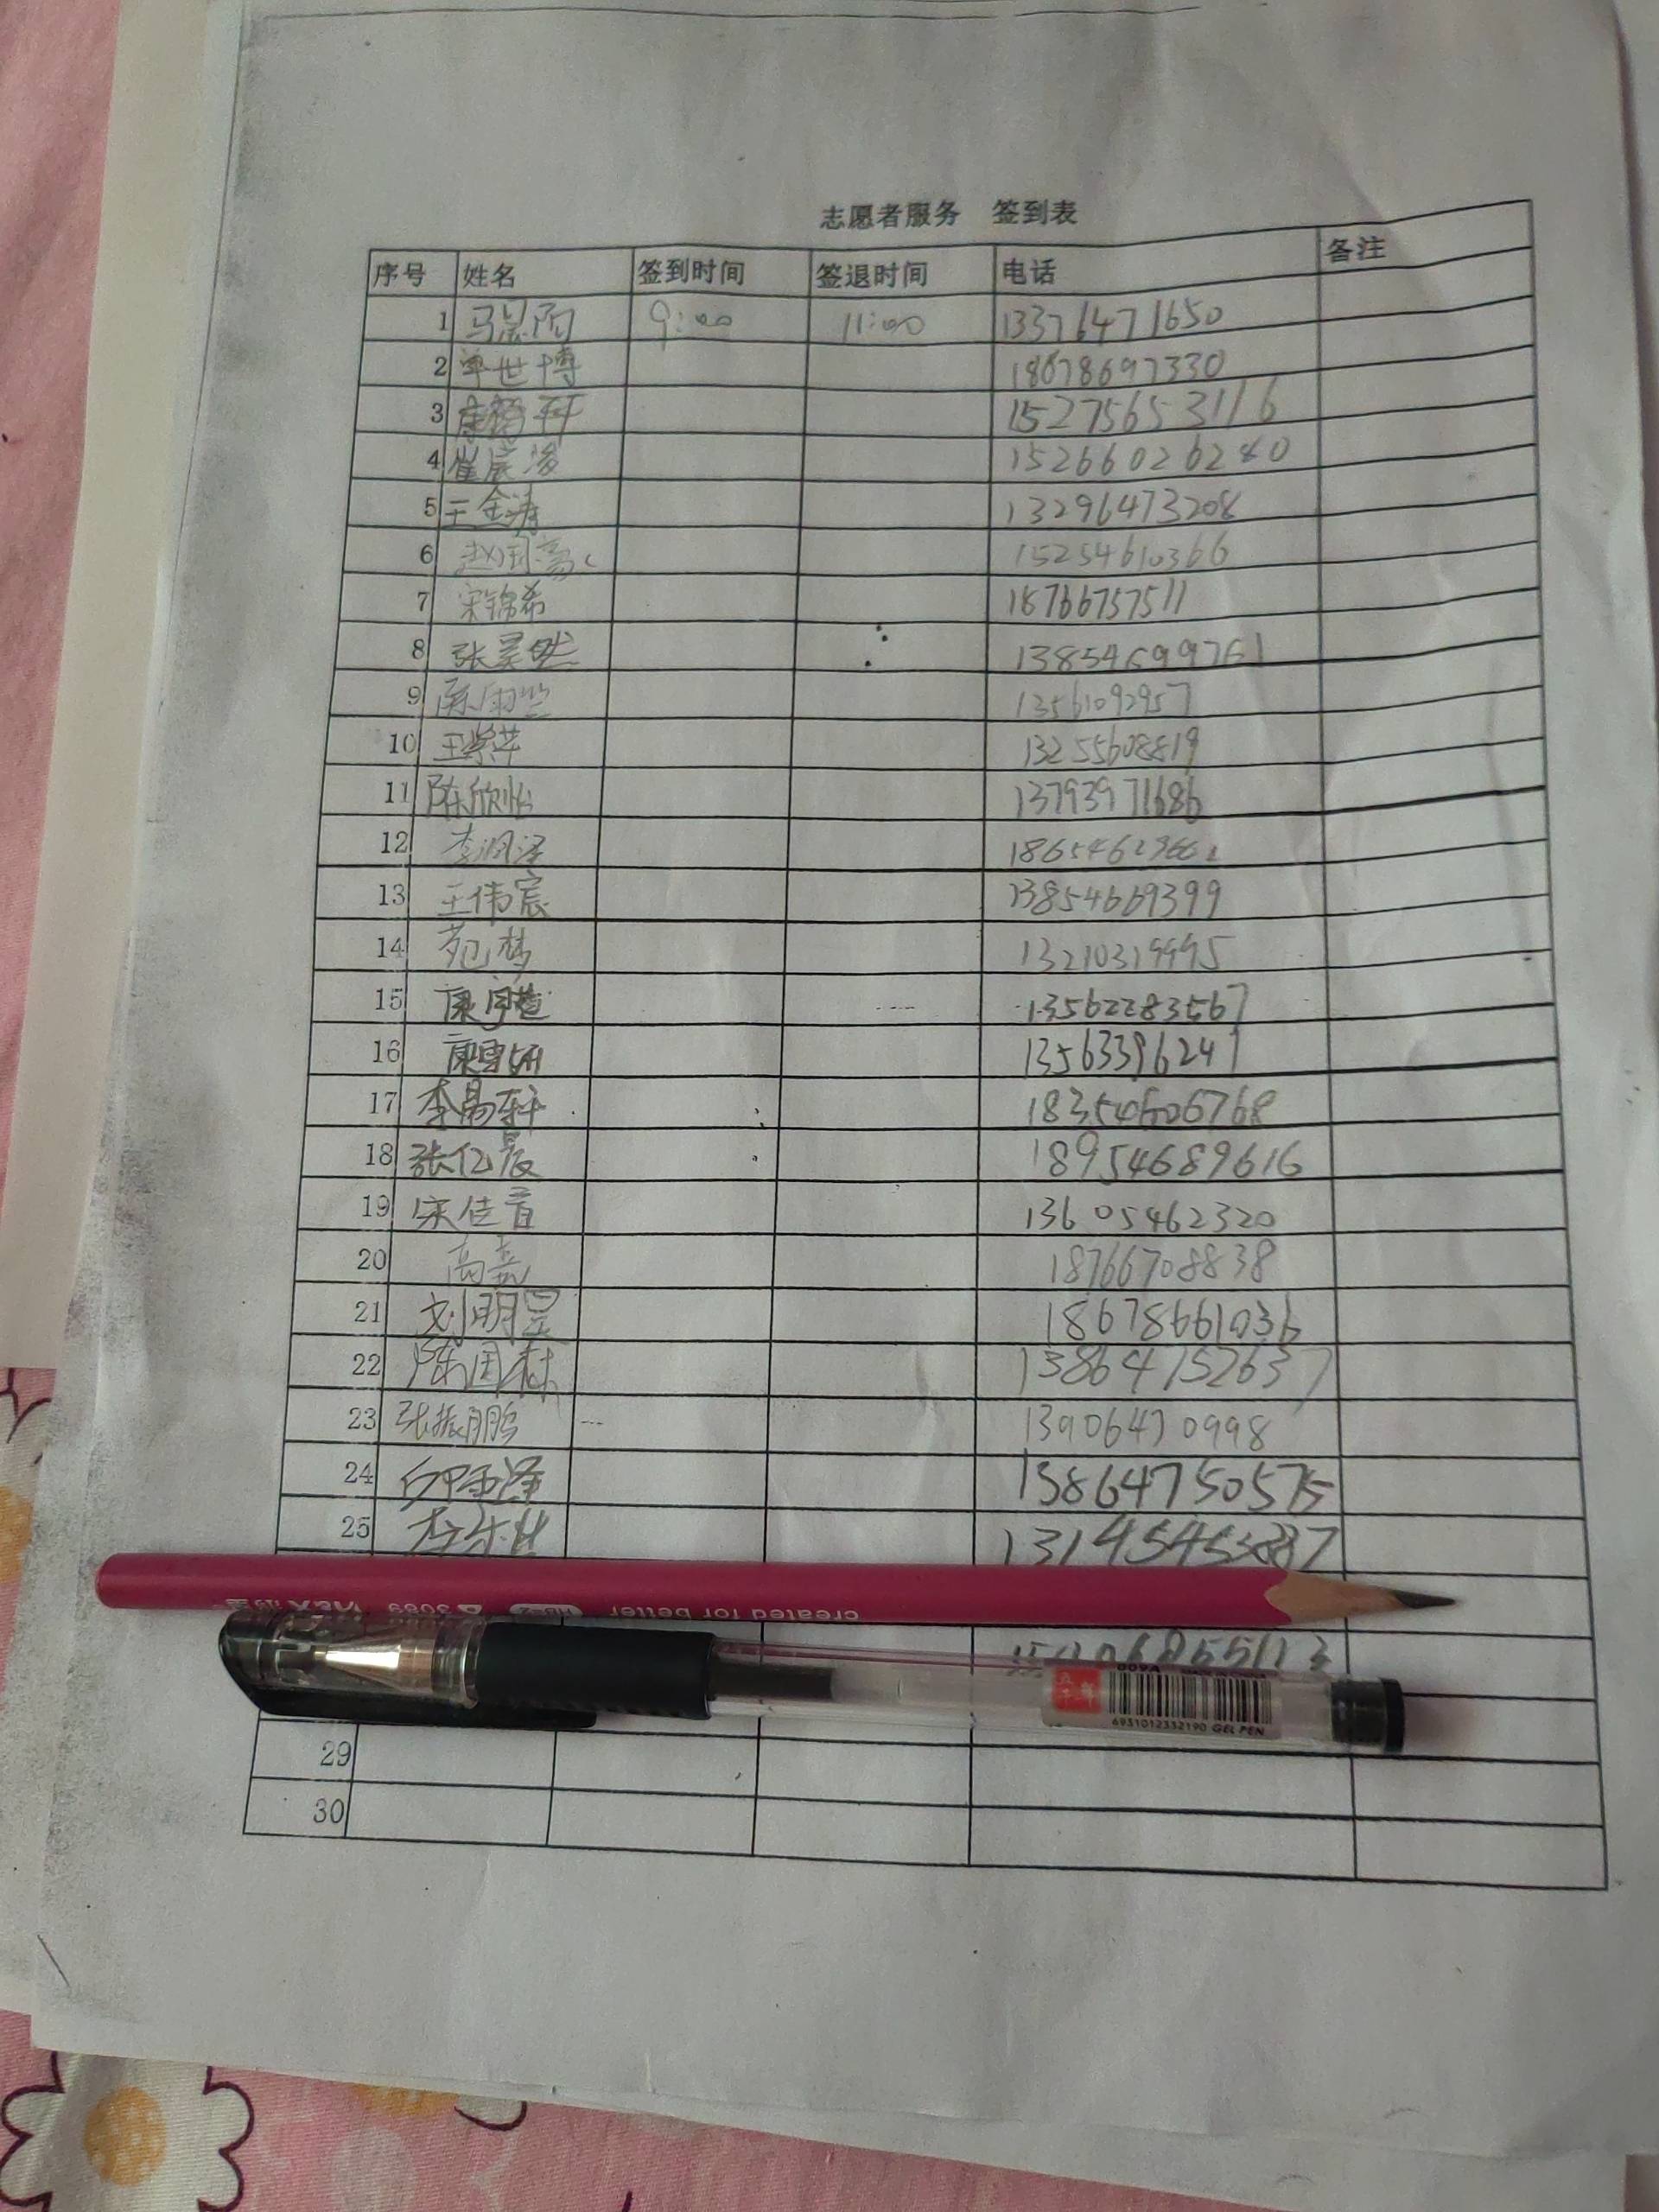 志愿者服务 签到表
序号 姓名 签到时间 签退时间 电话 备注
1 9:00 11:00 13376471650
2 单世博 18678697330
3 15275653116
4 崔宸 15266026240
5 王金涛 13296473208
6 赵国 15254610366
7 宋锦希 18766757511
8 张昊然 13854699761
9 13561092957
10 王 13255608819
11 陈欣怡 13793971686
12 李润泽
13 王伟宸 13854669399
14 苑梦 13210319995
15 康 13562283567
16 康雪妍 13563396247
17 李易轩
18 张亿晨 18954689616
19 宋佳音 13605462320
20 高 18766708838
21 刘明昱 18678661036
22 陈国林 13864152637
23 张振鹏 13906470998
24 13864750575
25 李
created for better
6931012332190 GEL PEN
29
30